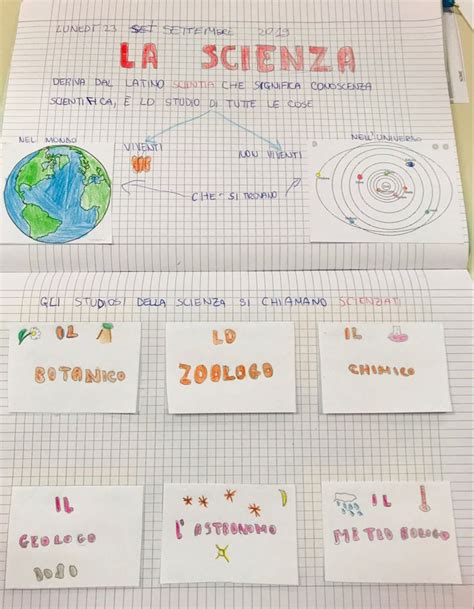 LUNEDÌ 23 SETTEMBRE 2019
LA SCIENZA
DERIVA DAL LATINO SCIENTIA CHE SIGNIFICA CONOSCENZA
SCIENTIFICA, È LO STUDIO DI TUTTE LE COSE
NEL MONDO
VIVENTI
NON VIVENTI
NELL'UNIVERSO
CHE SI TROVANO
GLI STUDIOSI DELLA SCIENZA SI CHIAMANO SCIENZIATI
IL
BOTANICO
LO
ZOOLOGO
IL
CHIMICO
IL
GEOLOGO
L'ASTRONOMO
IL
METEOROLOGO